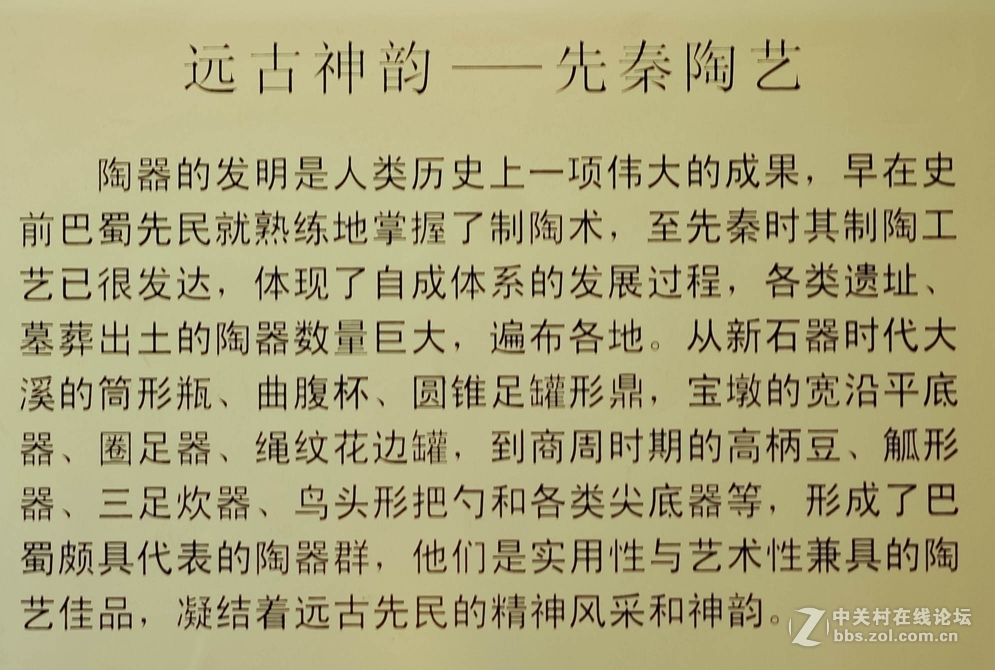 远古神韵——先秦陶艺
陶器的发明是人类历史上一项伟大的成果，早在史
前巴蜀先民就熟练地掌握了制陶术，至先秦时其制陶工
艺已很发达，体现了自成体系的发展过程，各类遗址、
墓葬出土的陶器数量巨大，遍布各地。从新石器时代大
溪的筒形瓶、曲腹杯、圆锥足罐形鼎，宝墩的宽沿平底
器、圈足器、绳纹花边罐，到商周时期的高柄豆、觚形
器、三足炊器、鸟头形把勺和各类尖底器等，形成了巴
蜀颇具代表的陶器群，他们是实用性与艺术性兼具的陶
艺佳品，凝结着远古先民的精神风采和神韵。
中关村在线论坛
bbs.zol.com.cn